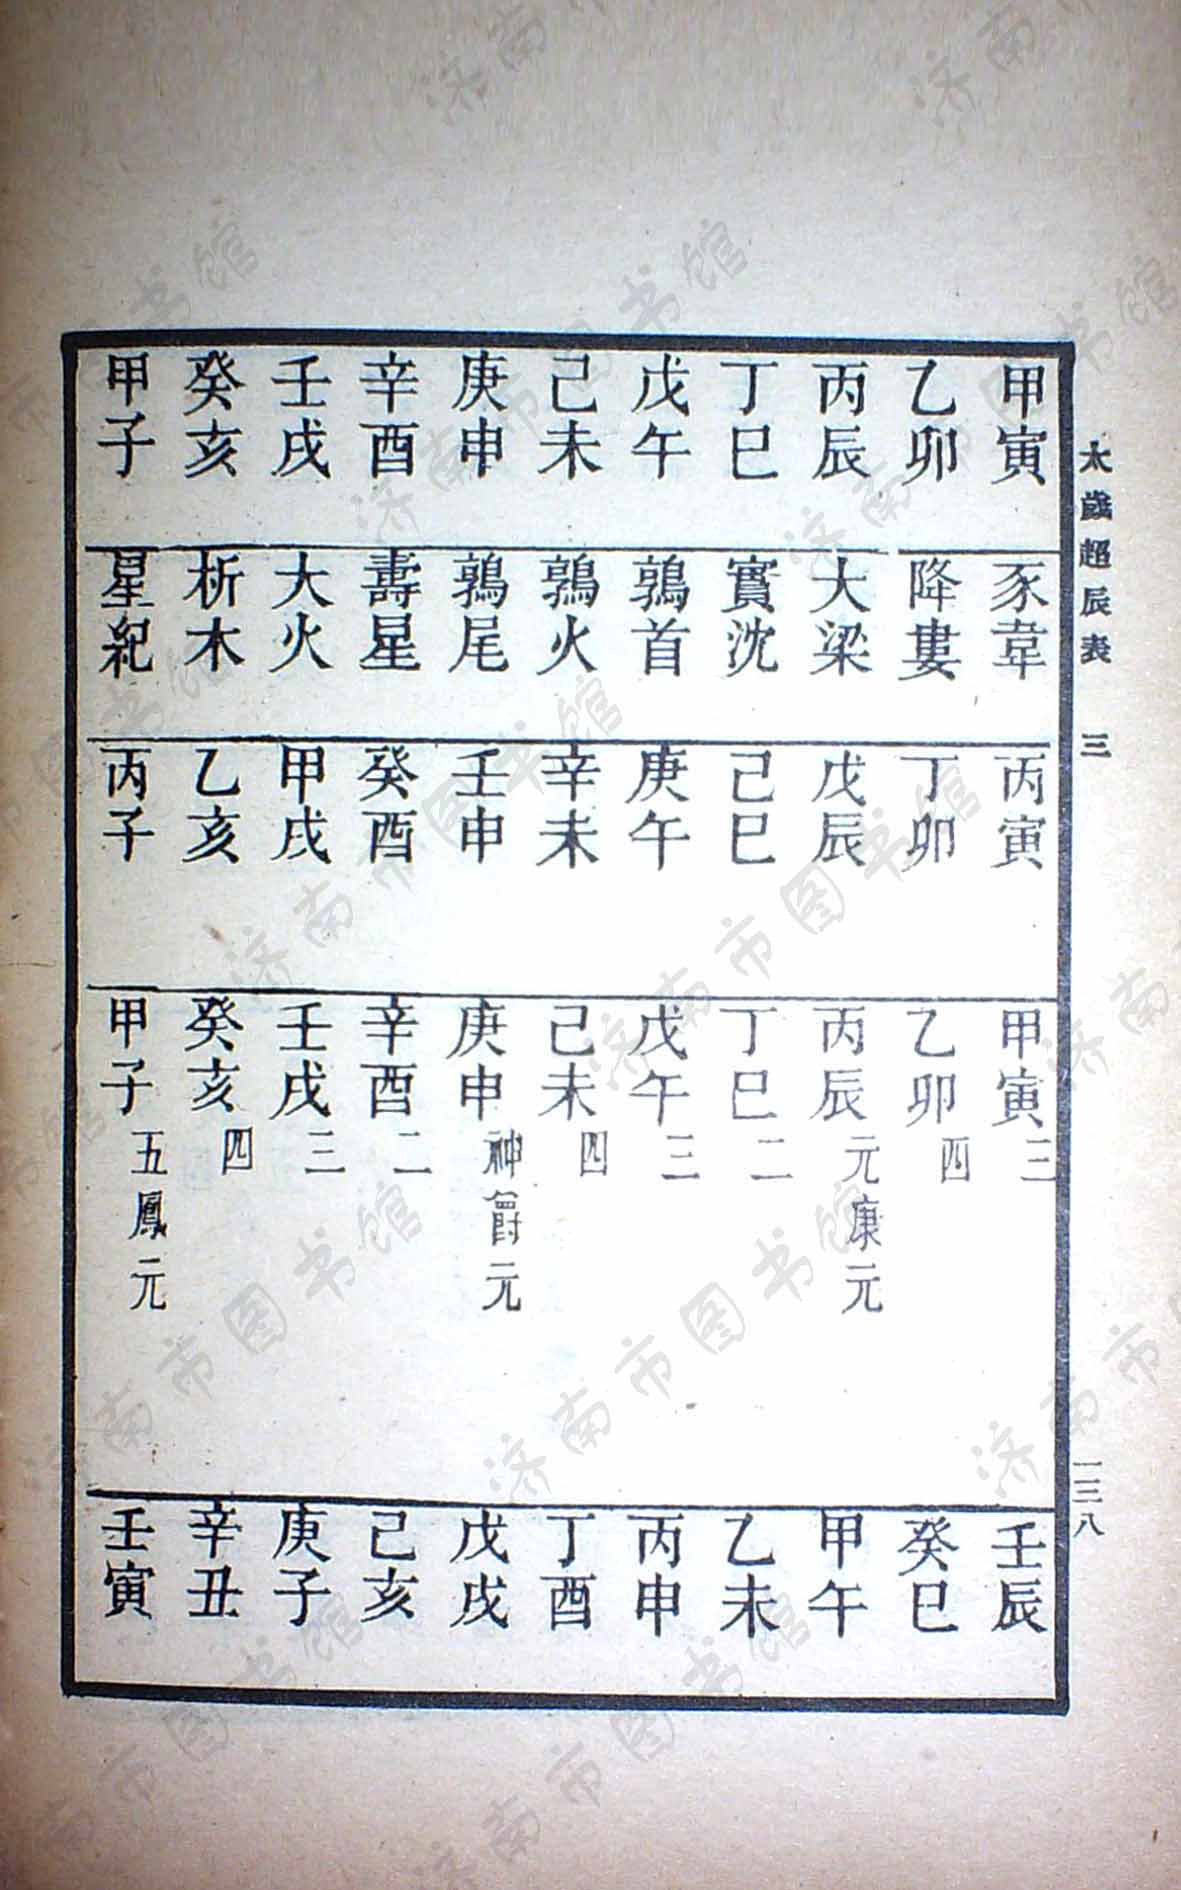 太歲超辰表 三 一三八
甲寅 豕韋 丙寅 甲寅 三 壬辰
乙卯 降婁 丁卯 乙卯 四 癸巳
丙辰 大梁 戊辰 丙辰 元康元 甲午
丁巳 實沈 己巳 丁巳 二 乙未
戊午 鶉首 庚午 戊午 三 丙申
己未 鶉火 辛未 己未 四 丁酉
庚申 鶉尾 壬申 庚申 神爵元 戊戌
辛酉 壽星 癸酉 辛酉 二 己亥
壬戌 大火 甲戌 壬戌 三 庚子
癸亥 析木 乙亥 癸亥 四 辛丑
甲子 星紀 丙子 甲子 五鳳元 壬寅
济南市图书馆